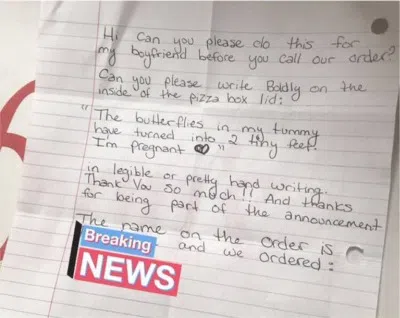 Hi, Can you please do this for
my boyfriend before you call our order?
Can you please write Boldly on the
inside of the pizza box lid:
"The butterflies in my tummy
have turned into 2 tiny feet.
I'm pregnant ♡"
in legible or pretty hand writing.
Thank You so much!! And thanks
for being part of the announcement
The name on the order is
Breaking
and we ordered:
NEWS